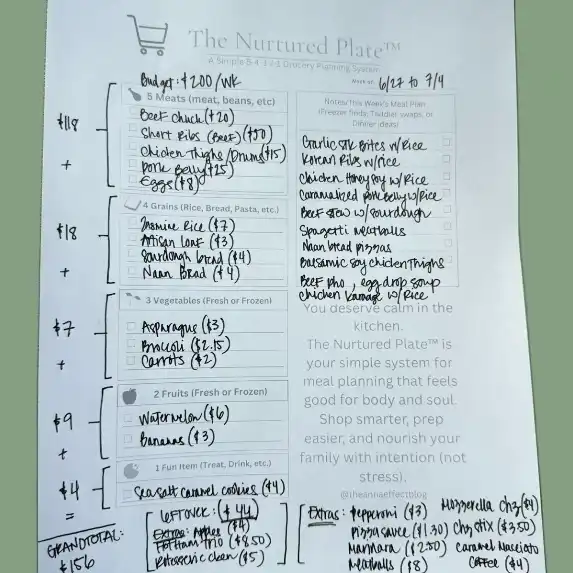 The Nurtured Plate™
A Simple 5-4-3-2-1 Grocery Planning System
Budget: $200/WK
Week of: 6/27 to 7/4
$118
+
$18
+
$7
+
$9
+
$4
=
GRANDTOTAL:
$156
5 Meats (meat, beans, etc)
Beef Chuck ($20)
Short Ribs (Beef) ($50)
Chicken Thighs/Drums($15)
Pork Belly($25)
Eggs($8)
4 Grains (Rice, Bread, Pasta, etc.)
Jasmine Rice ($7)
Artisan Loaf ($3)
Sourdough bread ($4)
Naan Bread ($4)
3 Vegetables (Fresh or Frozen)
Asparagus ($3)
Broccoli ($2.15)
Carrots ($2)
2 Fruits (Fresh or Frozen)
Watermelon ($6)
Bananas ($3)
1 Fun Item (Treat, Drink, etc.)
Seasalt Caramel cookies ($4)
Notes/This Week's Meal Plan
(Freezer finds, Toddler swaps, or
Dinner ideas)
Garlic Stk Bites w/Rice
Korean Ribs w/rice
Chicken Honey Soy w/ Rice
Caramalized Pork Belly w/Rice
Beef Stew w/ Sourdough
Spagetti Meatballs
Naan bread pizzas
Balsamic Soy chicken Thighs
Beef Pho, egg drop soup
Chicken Karrage w/ Rice
You deserve calm in the
kitchen.
The Nurtured Plate™ is
your simple system for
meal planning that feels
good for body and soul.
Shop smarter, prep
easier, and nourish your
family with intention (not
stress).
@theannaeffectblog
LEFTOVER: $44
Extras: Apples ($4)
Trio ($8.50)
Rotisserie chicken ($5)
Extras: Pepperoni ($3) Mozzerella Chz($4)
Pizza sauce ($1.30) Chz Stix ($3.50)
Marinara ($2.50) Caramel Macciato
Meatballs ($8) Coffee ($4)